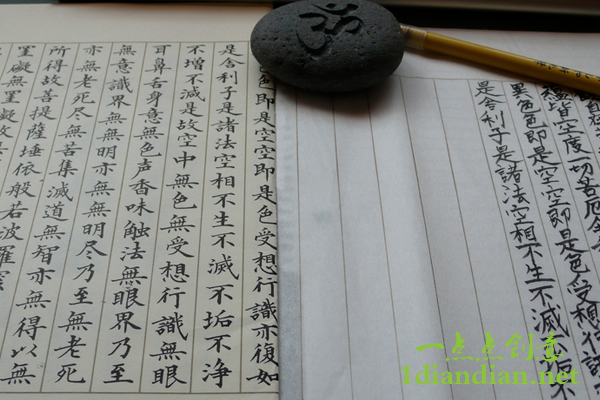 皆空度一切苦厄舎
異色色即是空空即是色受想行識
是舎利子是諸法空相不生不滅不垢不
色即是空空即是色受想行識亦復如
是舎利子是諸法空相不生不滅不垢不浄
不増不減是故空中無色無受想行識無眼
耳鼻舌身意無色声香味触法無眼界乃至
無意識界無無明亦無無明尽乃至無老死
亦無老死尽無苦集滅道無智亦無得以無
所得故菩提薩埵依般若波羅蜜
罣礙無罣礙故
一点点创意
1diandian.net